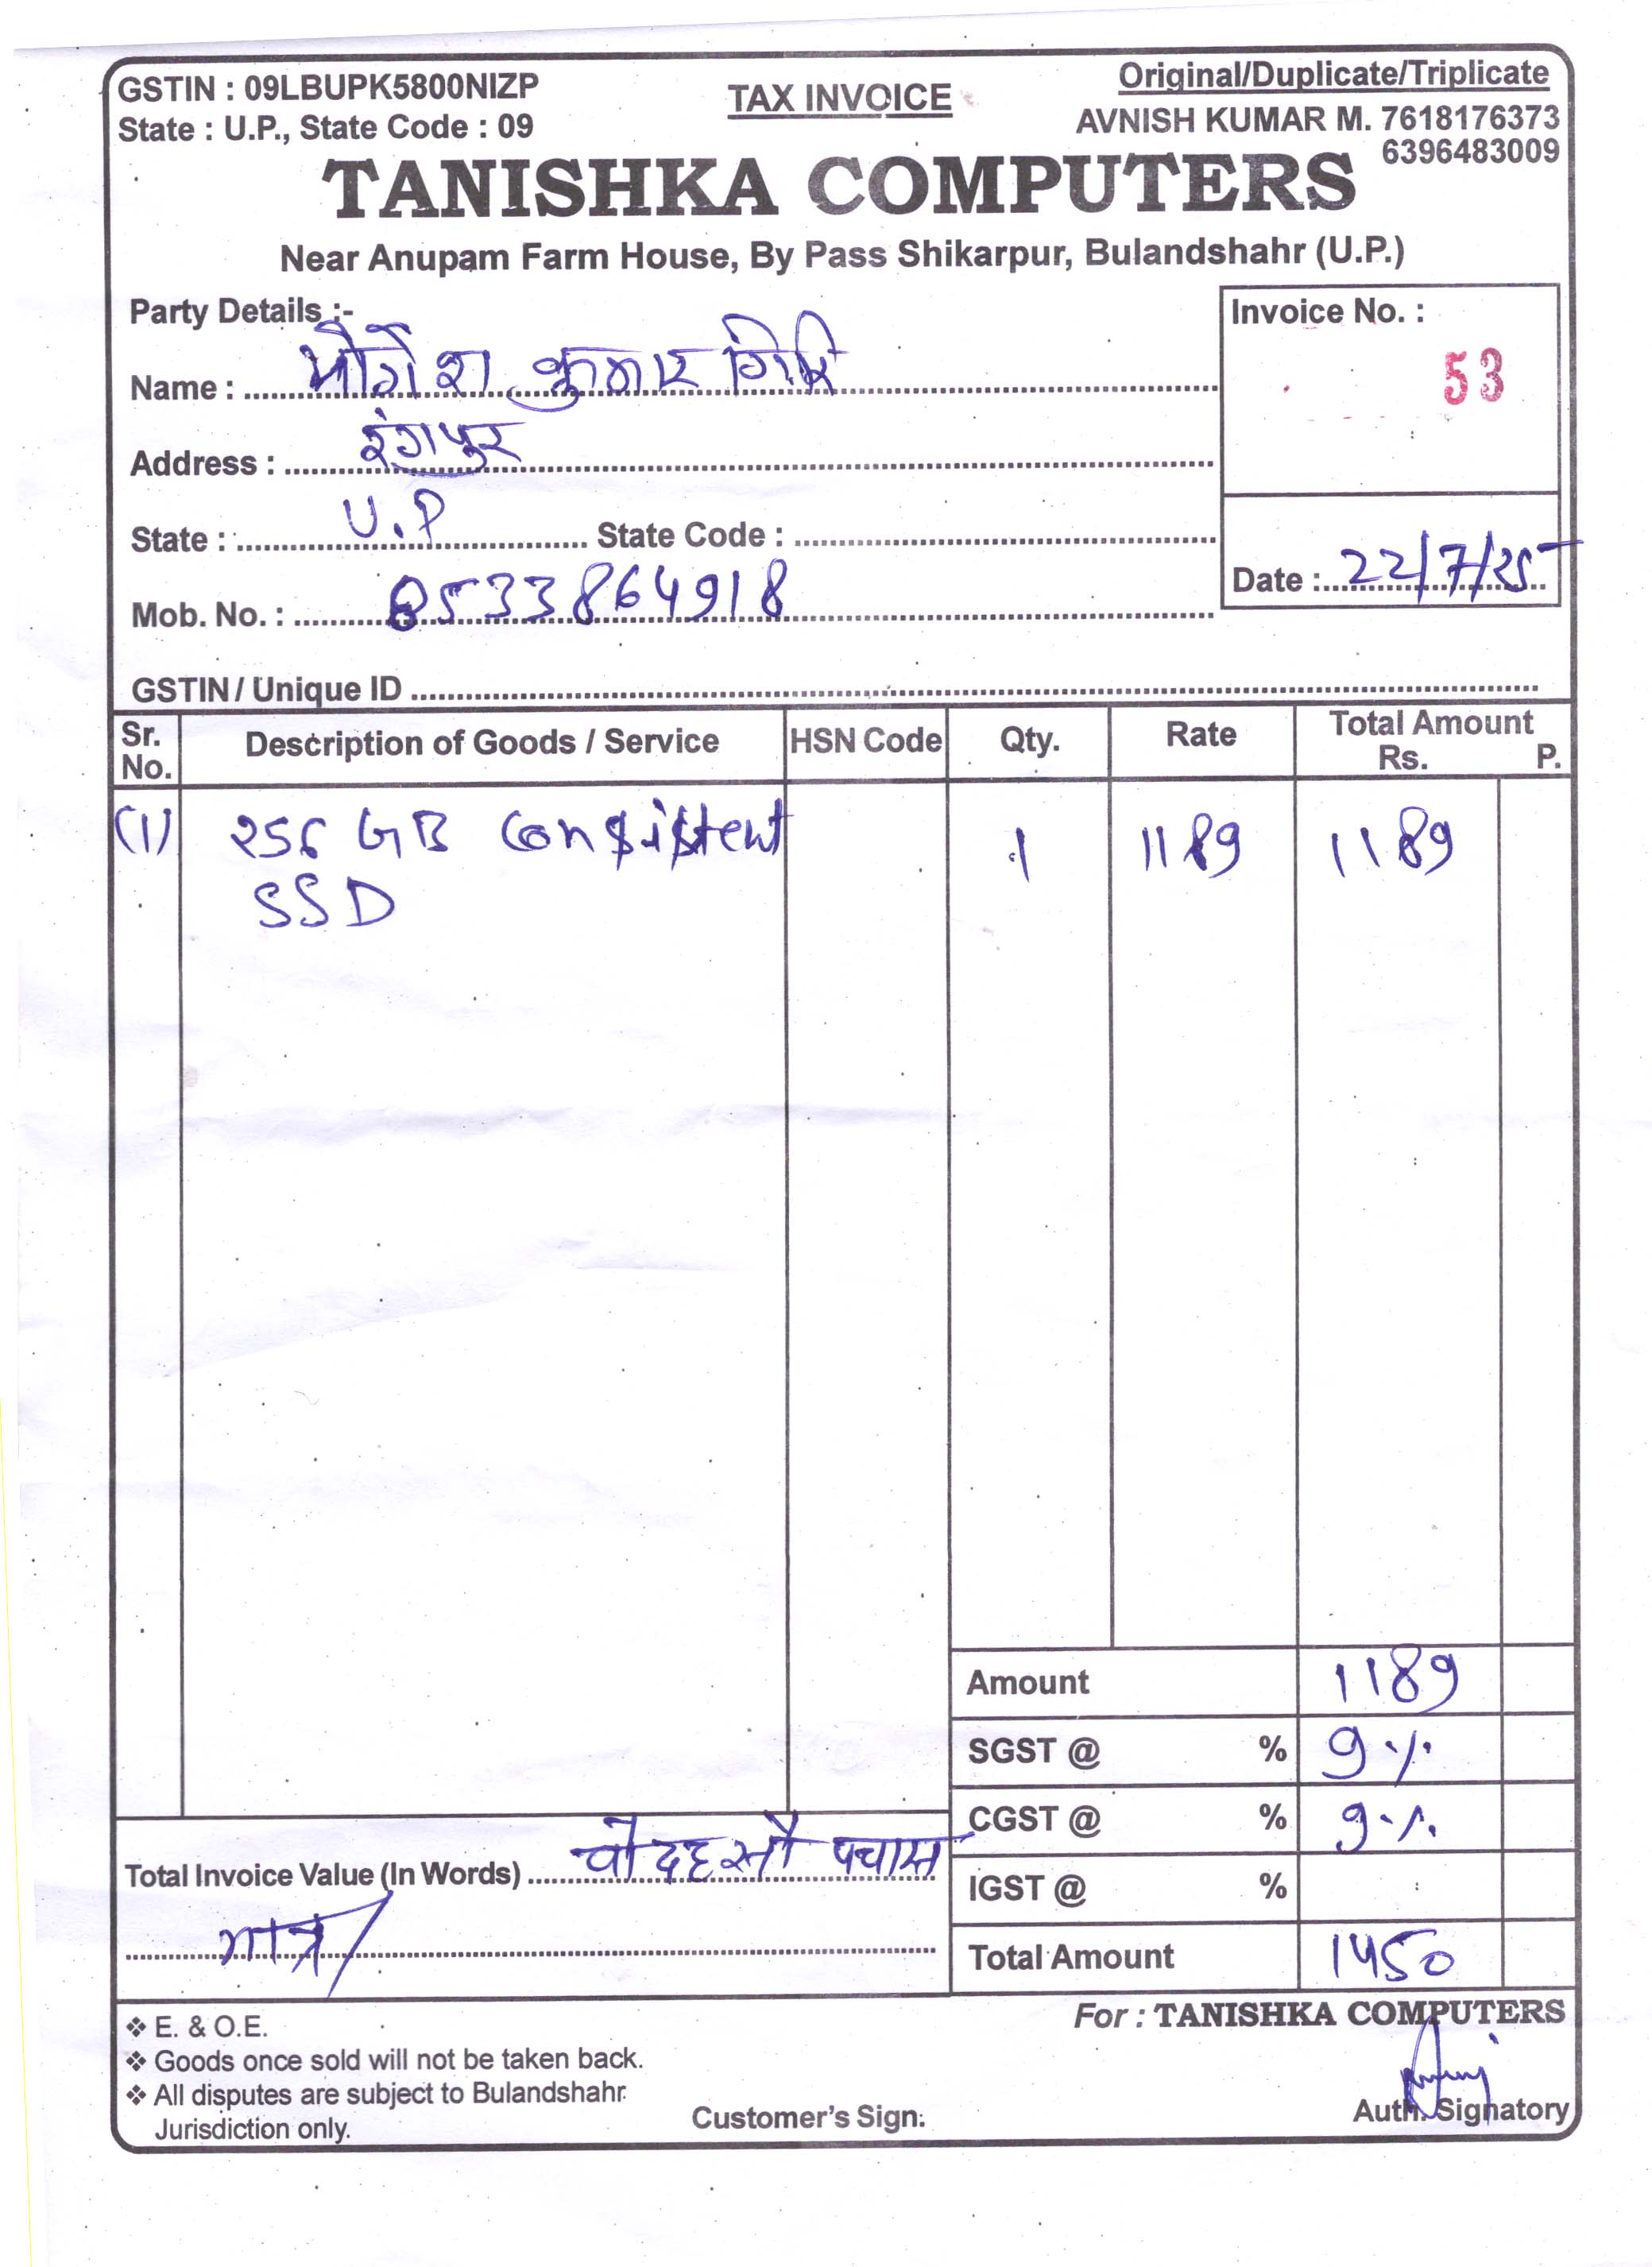 GSTIN : 09LBUPK5800NIZP
TAX INVOICE
Original/Duplicate/Triplicate
State : U.P., State Code : 09
AVNISH KUMAR M. 7618176373
6396483009
TANISHKA COMPUTERS
Near Anupam Farm House, By Pass Shikarpur, Bulandshahr (U.P.)
Party Details :-
Invoice No. :
53
Name : योगेश कुमार गिरि
Address : रंगपुर
State : U.P State Code :
Date : 22/7/25
Mob. No. : 8533864918
GSTIN / Unique ID
Sr. No. Description of Goods / Service HSN Code Qty. Rate Total Amount Rs. P.
(1) 256 GB Consistent 1 1189 1189
SSD
Amount 1189
SGST @ % 9%
CGST @ % 9%
Total Invoice Value (In Words) चौदह सौ पचास
IGST @ %
मात्र/
Total Amount 1450
For : TANISHKA COMPUTERS
❖ E. & O.E.
❖ Goods once sold will not be taken back.
❖ All disputes are subject to Bulandshahr
Jurisdiction only.
Customer's Sign.
Auth. Signatory